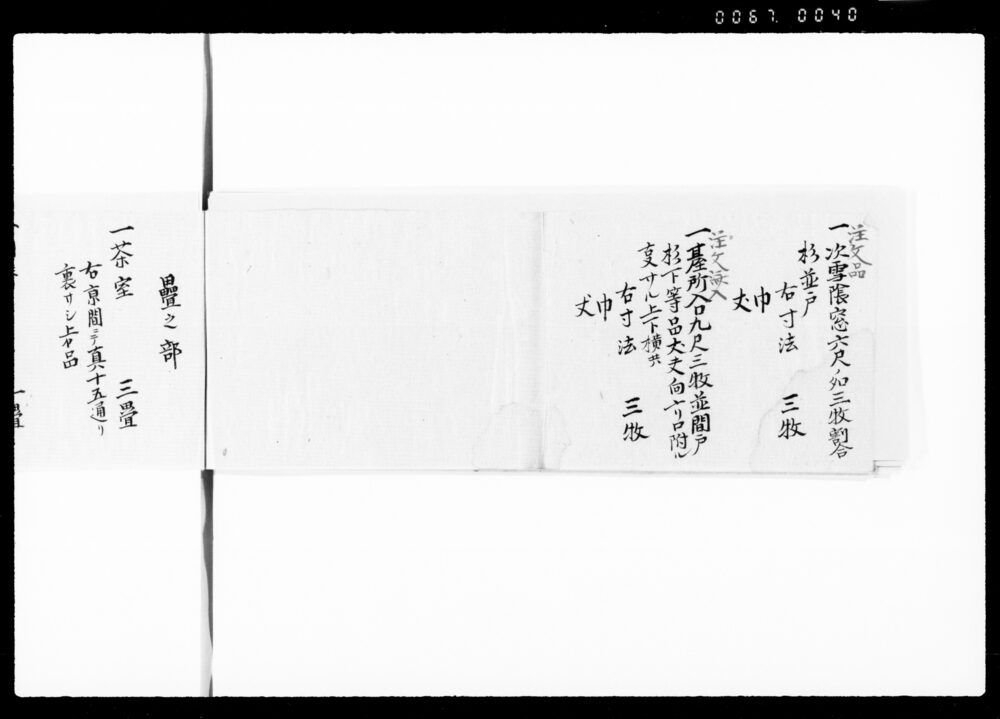 0067. 0040
注文品
一次雪隠窓六尺ノ処三牧割合
杉並戸
右寸法 三牧
巾
丈
注文
一䑓所入口九尺三牧並間戸
杉下等品大丈向 口附ル
サル上下横共
右寸法 三牧
巾
丈
疊之部
一茶室 三畳
右京間ニテ真十五通リ
裏サシ上ケ品